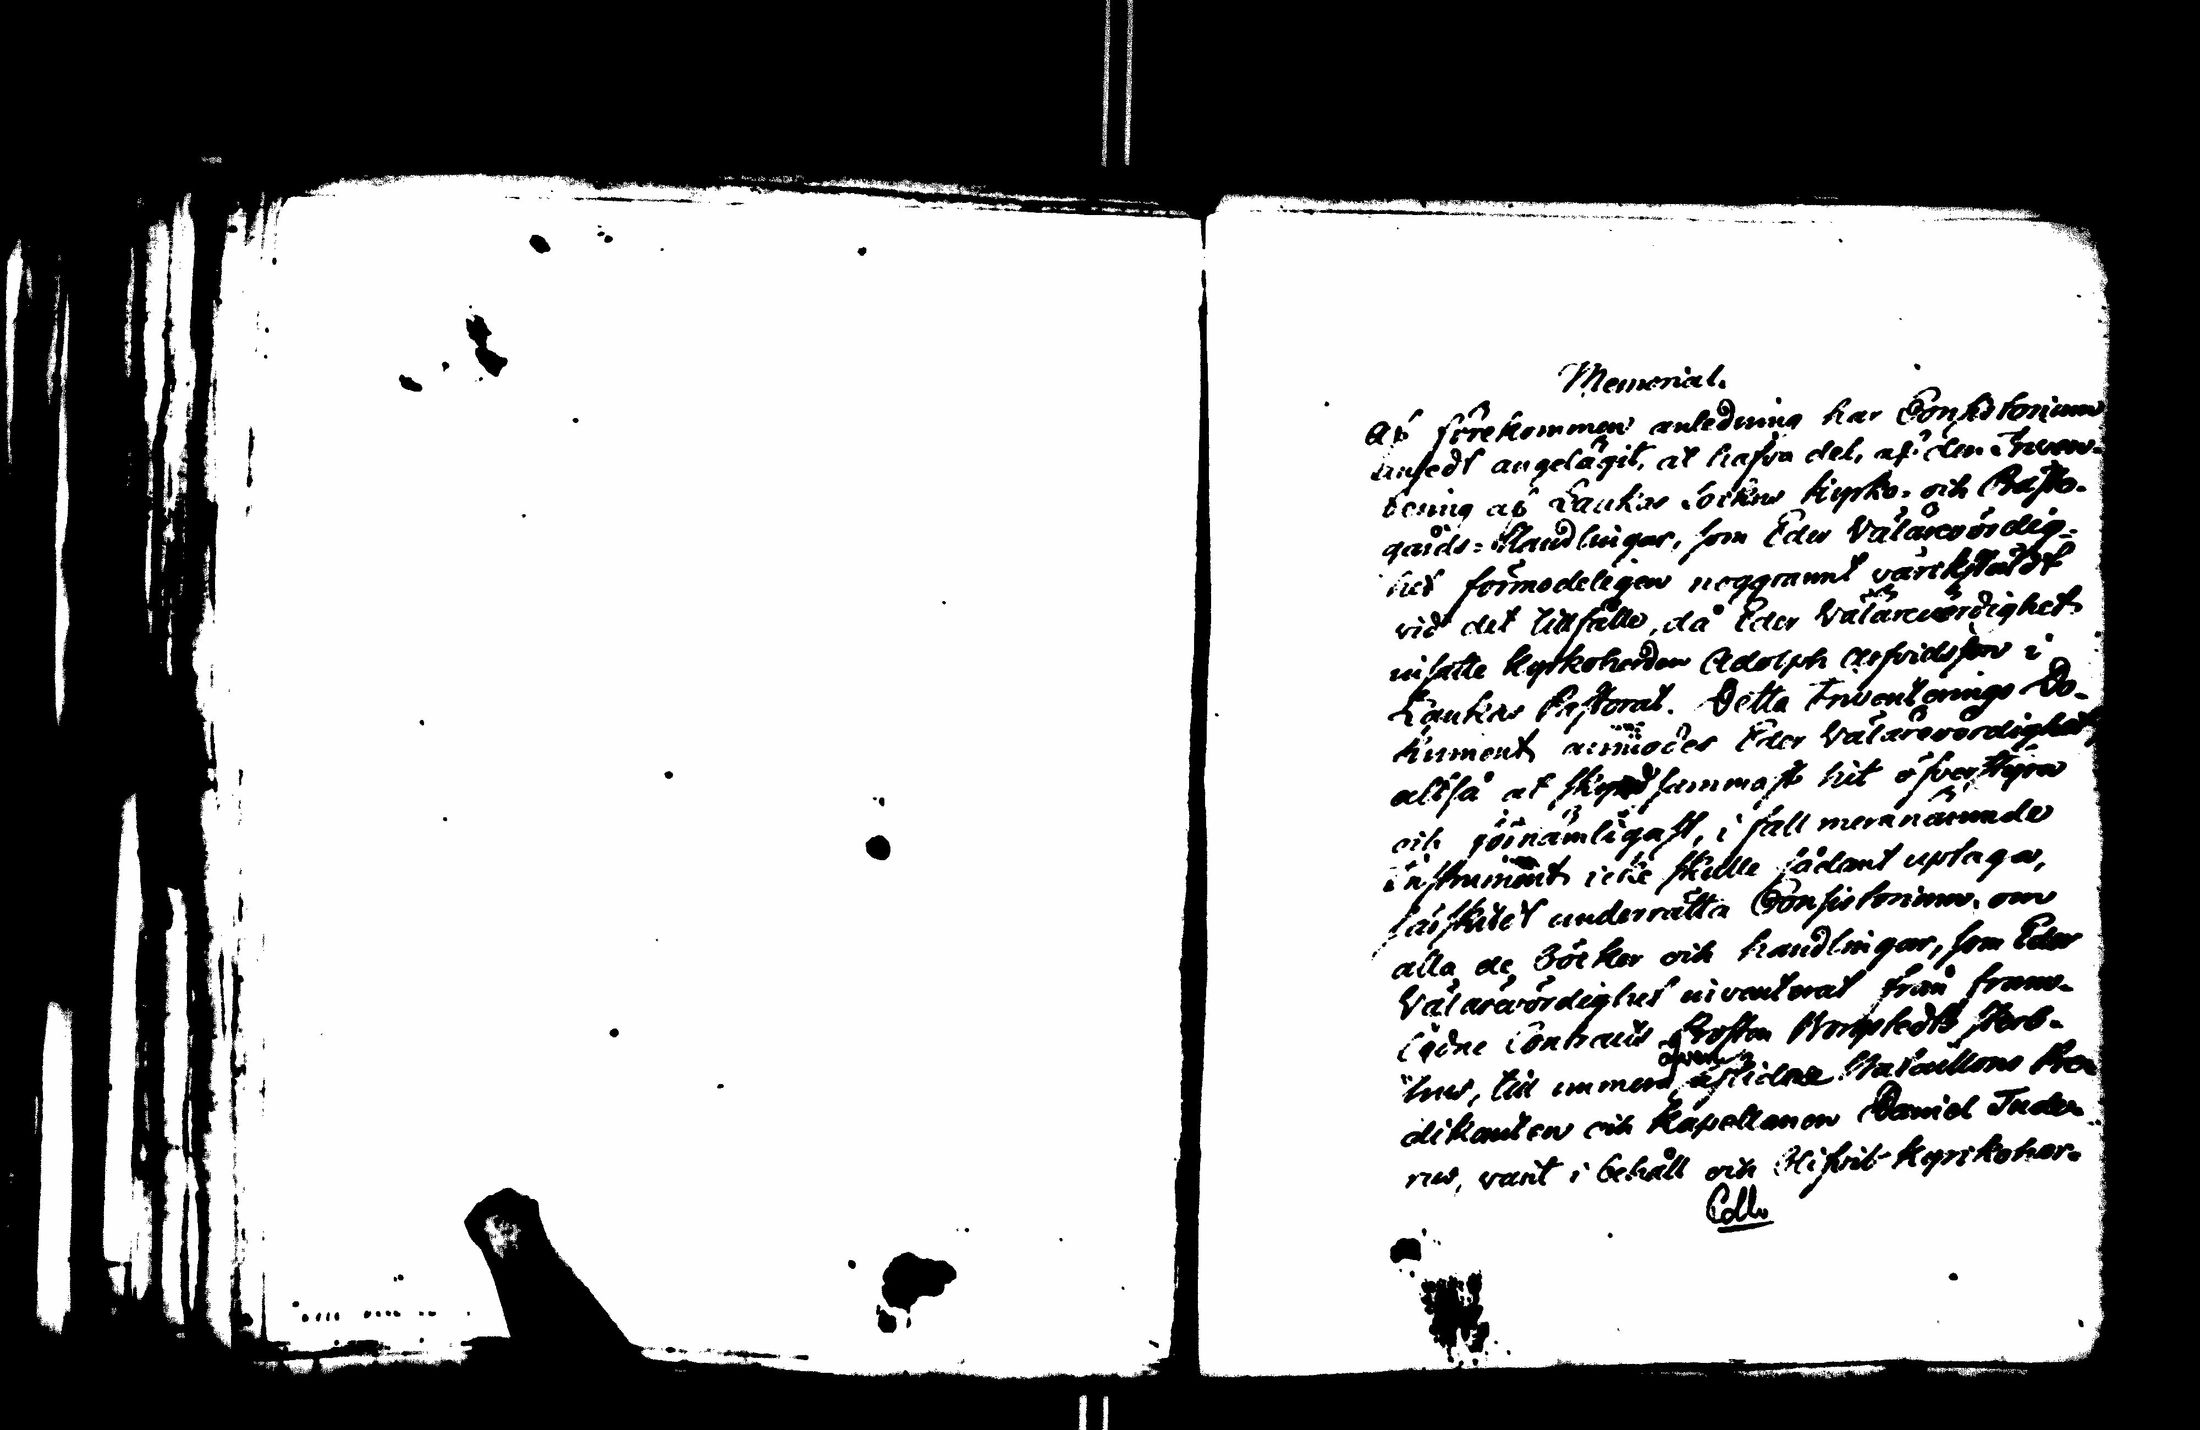 Memorial.
Af förekommen anledning har Consistorium
ansedt angelägit, at hafva del, af den Inven-
tering af Laukas Sockns Kyrko- och Prästo-
gårds-Handlingar, som Eder Välärevördig-
het förmodeligen noggrannt värckstäldt
vid det tillfälle, då Eder Välärevördighet
insatte Kyrkoherden Adolph Arfvidsson i
Laukas Pastorat. Detta Inventerings Do-
kument anmodes Eder Välärevördighet,
altså at skyndsammast hit öfverstyra
och förnämligast, i fall mernämnde
Instrument icke skulle sådant uptaga,
särskildt underrätta Consistorium, om
alla de Böcker och handlingar, som Eder
Välärevördighet inventerat från fram-
ledne Contracts Prosten Norgstedts sterb-
hus, till immera äfven aflidne Bataillons Pre-
dikanten och Kapellanen Daniel Inde-
rus, varit i behåll och Hifrit Kyrkoher-
Coll.